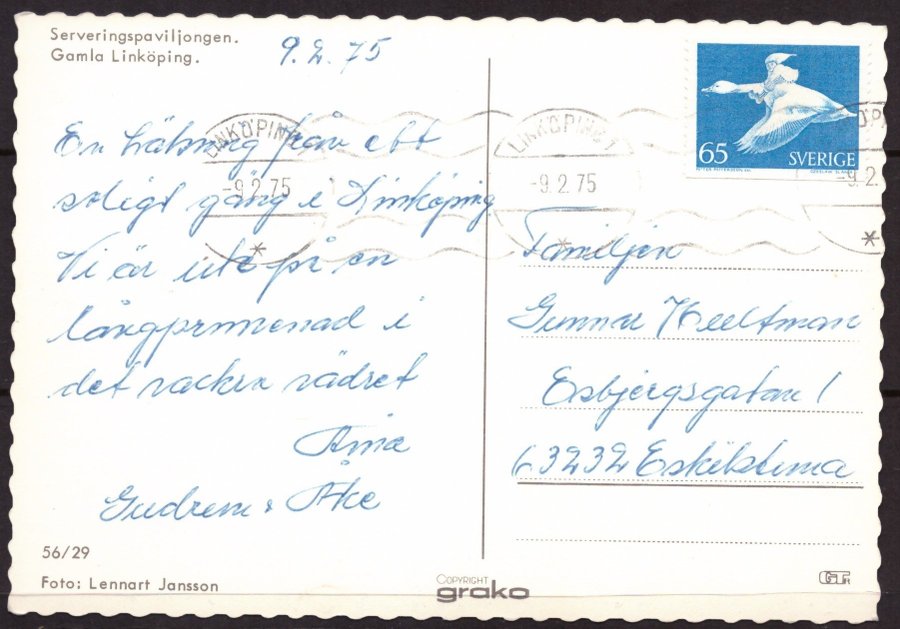 Serveringspaviljongen.
Gamla Linköping.
9.2.75
En hälsning från ett
soligt gäng i Linköping
Vi är ute på en
långpromenad i
det vackra vädret
Anna
Gudrun & Åke
56/29
Foto: Lennart Jansson
COPYRIGHT
grako
65 SVERIGE
LINKÖPING 1
-9.2.75
LINKÖPING 1
-9.2.75
-9.2.
Familjen
Gunnar Hultman
Esbjergsgatan 1
63232 Eskilstuna
GT